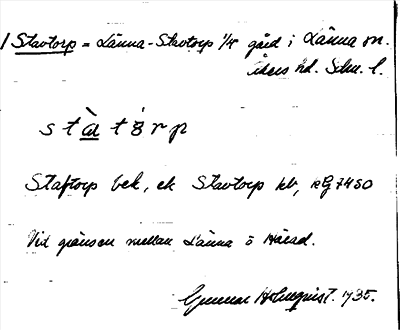 1 Stavtorp = Länna-Stavtorp 1/4 gård i Länna sn.
Åkers hd. Södm. l.
stàtórp
Staftorp bek, ek Stavtorp kb, RG 7450
Vid gränsen mellan Länna o Härad.
Gunnar Holmqvist. 1935.